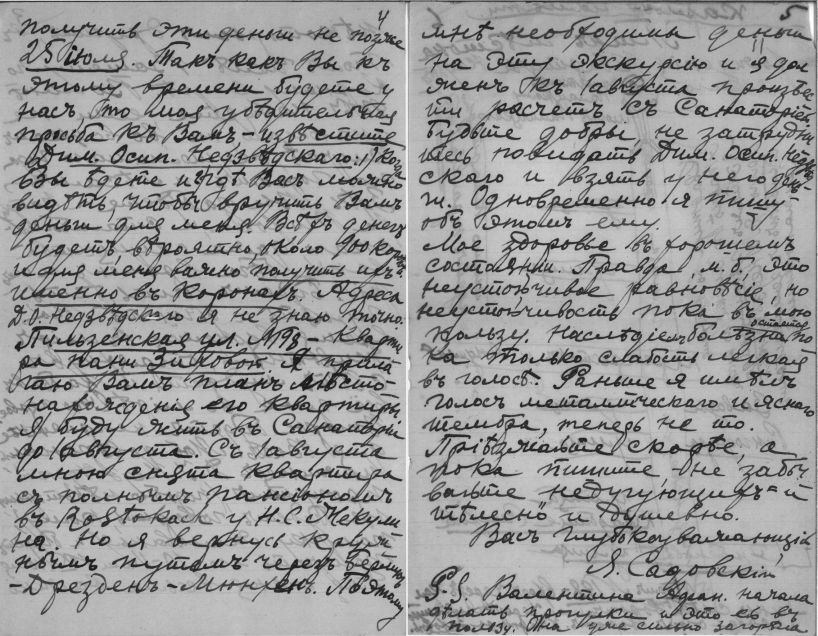 4
получить эти деньги не позже
25 июля. Такъ какъ Вы къ
этому времени будете у
насъ, то моя убѣдительная
просьба къ Вамъ – извѣстите
Дим. Осип. Недзвѣдскаго: 1) когда
Вы ѣдете и гдѣ Васъ можно
видѣть, чтобы вручить Вамъ
деньги для меня. Всѣхъ денегъ
будетъ вѣроятно, около 900 коронъ
и для меня важно получить ихъ
именно въ коронахъ. Адреса
Д. О. Недзвѣдскаго я не знаю точно:
Пильзенская ул. № – Кварти
ра пани Зиковой. Я прила
гаю Вамъ планъ мѣсто-
нахожденія его квартиры.
Я буду жить въ Санаторіи
до 1 августа. Съ 1 августа
мною снята квартира
съ полнымъ пансіономъ
въ у Н. С. Жекули
на. Но я вернусь круж
нымъ путемъ черезъ Берлинъ
– Дрезденъ – Мюнхенъ. Поэтому
5
мнѣ необходимы деньги
на эту экскурсію и я дол
женъ къ 1 августа произвес
ти расчетъ съ Санаторіей.
Будьте добры не затрудни
тесь повидать Дим. Осип. Недзвѣд
скаго и взять у него день-
ги. Одновременно я пишу
объ этомъ ему.
Мое здоровье въ хорошемъ
состояніи. Правда, м. б., это
неустойчивое равновѣсіе, но
неустойчивость пока въ мою
пользу. Наслѣдіемъ болѣзни остается по
ка только слабость легкая
въ голосѣ. Раньше я имѣлъ
голосъ металлическаго и яснаго
тембра, теперь не то.
Пріѣзжайте скорѣе, а
пока пишите и не забы
вайте недугующихъ и
тѣлесно и душевно.
Васъ глубокоуважающій
Я. Садовскій
P.S. Валентина начала
дѣлать прогулки и это ей въ
пользу. Она уже сильно загорѣла